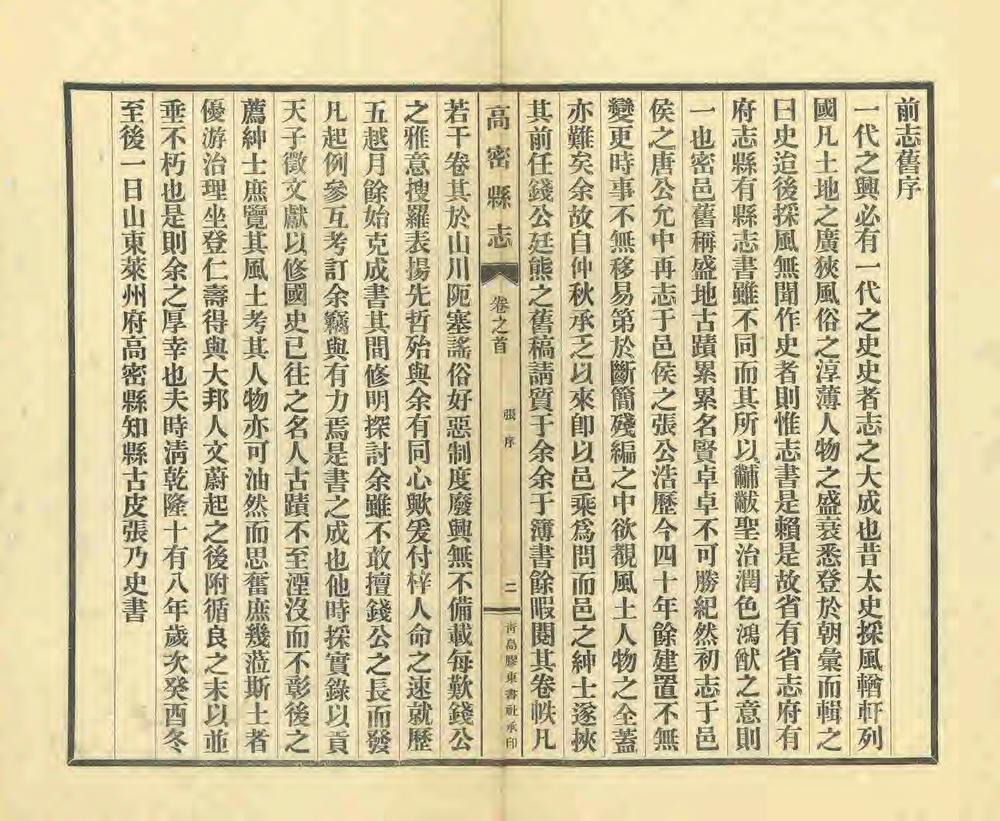 前志舊序
一代之興必有一代之史史者志之大成也昔太史採風輶軒列
國凡土地之廣狹風俗之淳薄人物之盛衰悉登於朝彙而輯之
曰史迨後採風無聞作史者則惟志書是賴是故省有省志府有
府志縣有縣志書雖不同而其所以黼黻聖治潤色鴻猷之意則
一也密邑舊稱盛地古蹟累累名賢卓卓不可勝紀然初志于邑
侯之唐公允中再志于邑侯之張公浩歷今四十年餘建置不無
變更時事不無移易第於斷簡殘編之中欲觀風土人物之全蓋
亦難矣余故自仲秋承乏以來卽以邑乘爲問而邑之紳士遂挾
其前任錢公廷熊之舊稿請質于余余于簿書餘暇閱其卷帙凡
高密縣志
卷之首
張序
二
靑島膠東書社承印
若干卷其於山川阨塞謠俗好惡制度廢興無不備載每歎錢公
之雅意搜羅表揚先哲殆與余有同心歟爰付梓人命之速就歷
五越月餘始克成書其間修明探討余雖不敢擅錢公之長而發
凡起例參互考訂余竊與有力焉是書之成也他時採實錄以貢
天子徵文獻以修國史已往之名人古蹟不至湮沒而不彰後之
薦紳士庶覽其風土考其人物亦可油然而思奮庶幾蒞斯土者
優游治理坐登仁壽得與大邦人文蔚起之後附循良之末以並
垂不朽也是則余之厚幸也夫時淸乾隆十有八年歲次癸酉冬
至後一日山東萊州府高密縣知縣古皮張乃史書